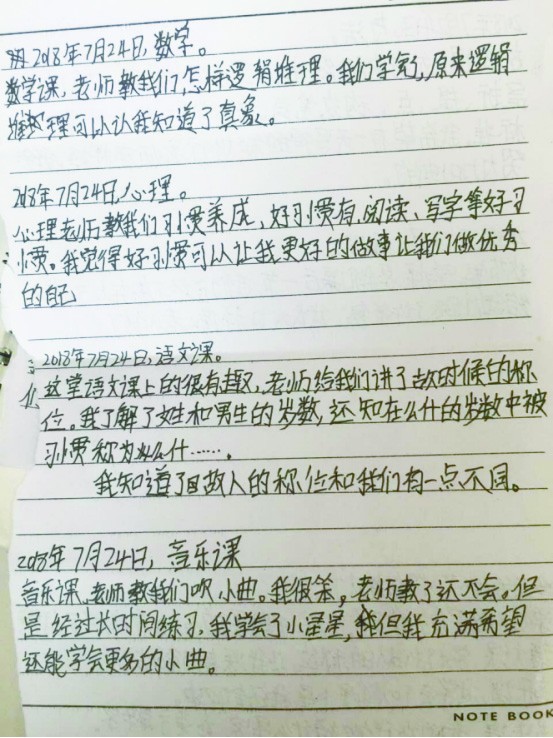 2018年7月24日,数学。
数学课,老师教我们怎样逻辑推理。我们学完,原来逻辑
推理可以让我知道了真象。
2018年7月24日,心理。
心理老师教我们习惯养成,好习惯有阅读、写字等好习
惯。我觉得好习惯可以让我更好的做事让我们做优秀
的自己
2018年7月24日,语文课。
这堂语文课上的很有趣,老师给我们讲了故时候的称
位。我了解了女性和男生的岁数,还知在么什的岁数中被
习惯称为么什……。
我知道了故人的称位和我们有一点不同。
2018年7月24日,音乐课
音乐课,老师教我们吹小曲。我很笨,老师教了还不会。但
是经过长时间练习,我学会了小星星,但我充满希望
还能学会更多的小曲。
NOTE BOOK